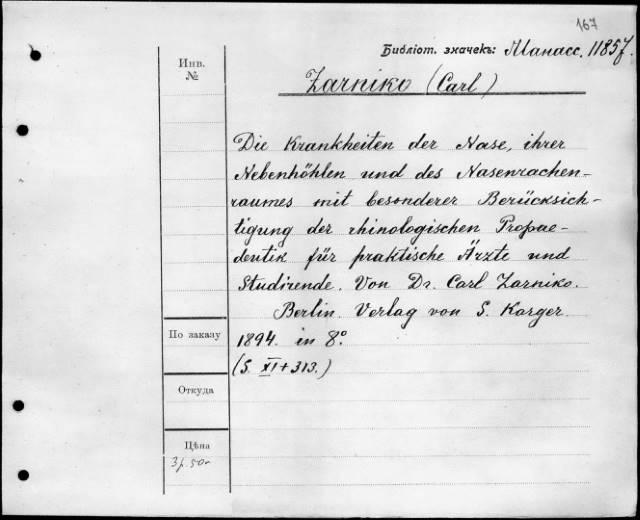 167
Библіот. значекъ: Манасс. 11857.
Инв. №
Zarniko (Carl)
Die Krankheiten der Nase, ihrer
Nebenhöhlen und des Nasenrachen-
raumes mit besonderer Berücksich-
tigung der rhinologischen Propae-
deutik für praktische Ärzte und
Studirende. Von Dr. Carl Zarniko.
Berlin. Verlag von S. Karger.
По заказу
1894. in 8°.
(S. XI+313.)
Откуда
Цѣна
3 р. 50